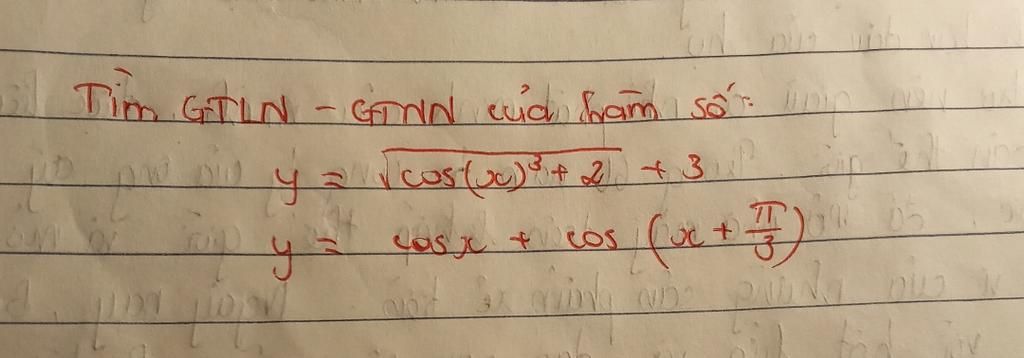 Tìm GTLN - GTNN của hàm số:
y = √cos(x)³ + 2 + 3
y = cosx + cos (x + π/3)